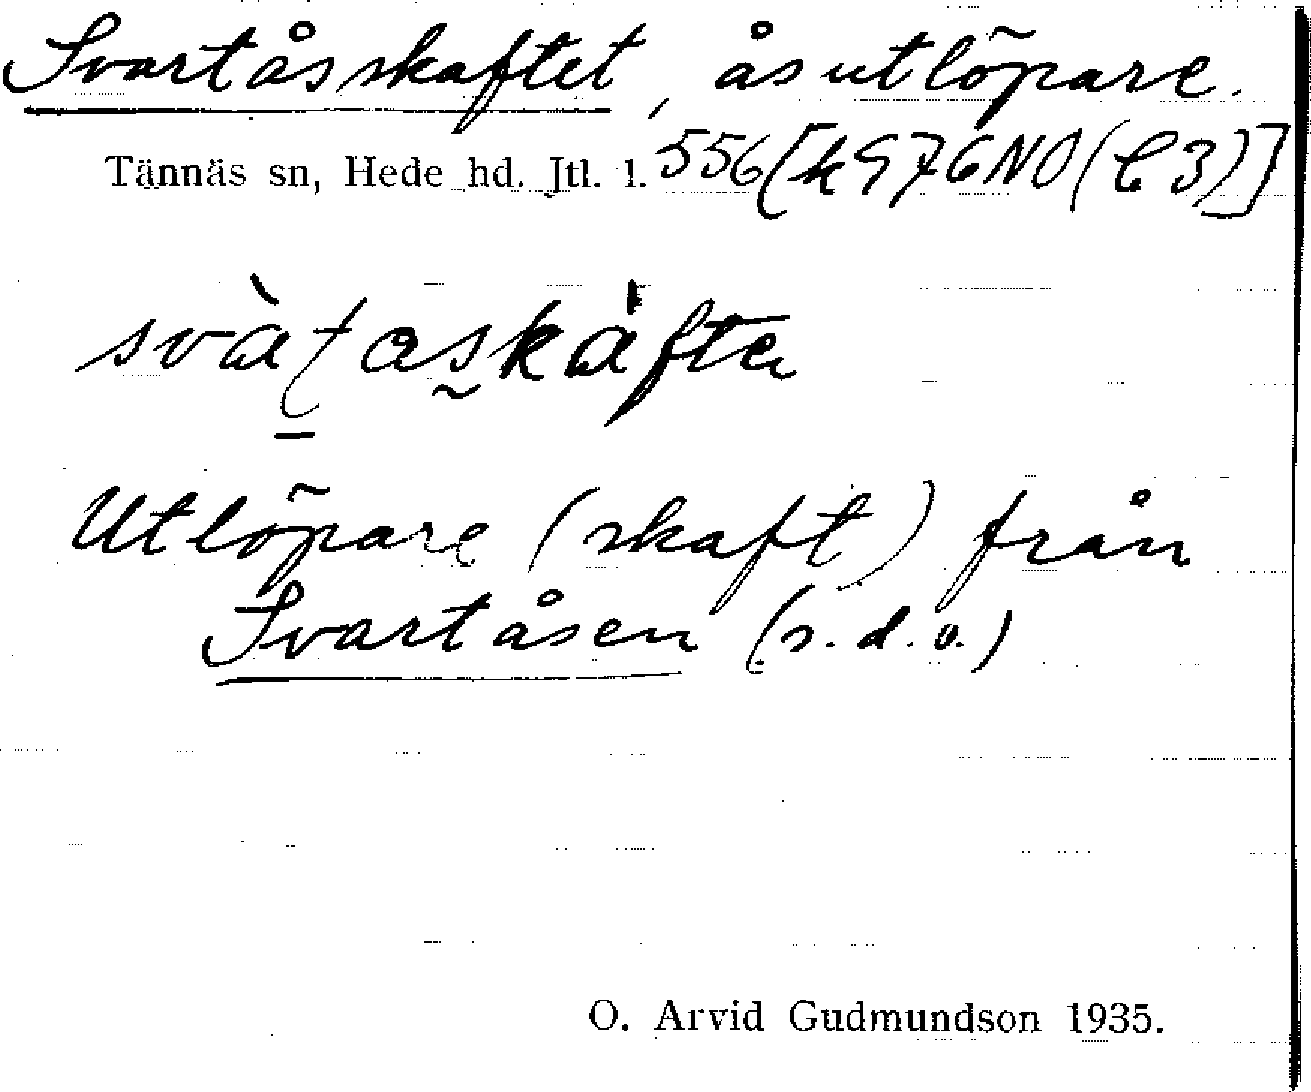 Svartåsskaftet, åsutlöpare.
Tännäs sn, Hede hd. Jtl. l. 556 [k 976 NO (C 3)]
svàʈaskàfte
Utlöpare (skaft) från
Svartåsen (s.d.o.)
O. Arvid Gudmundson 1935.